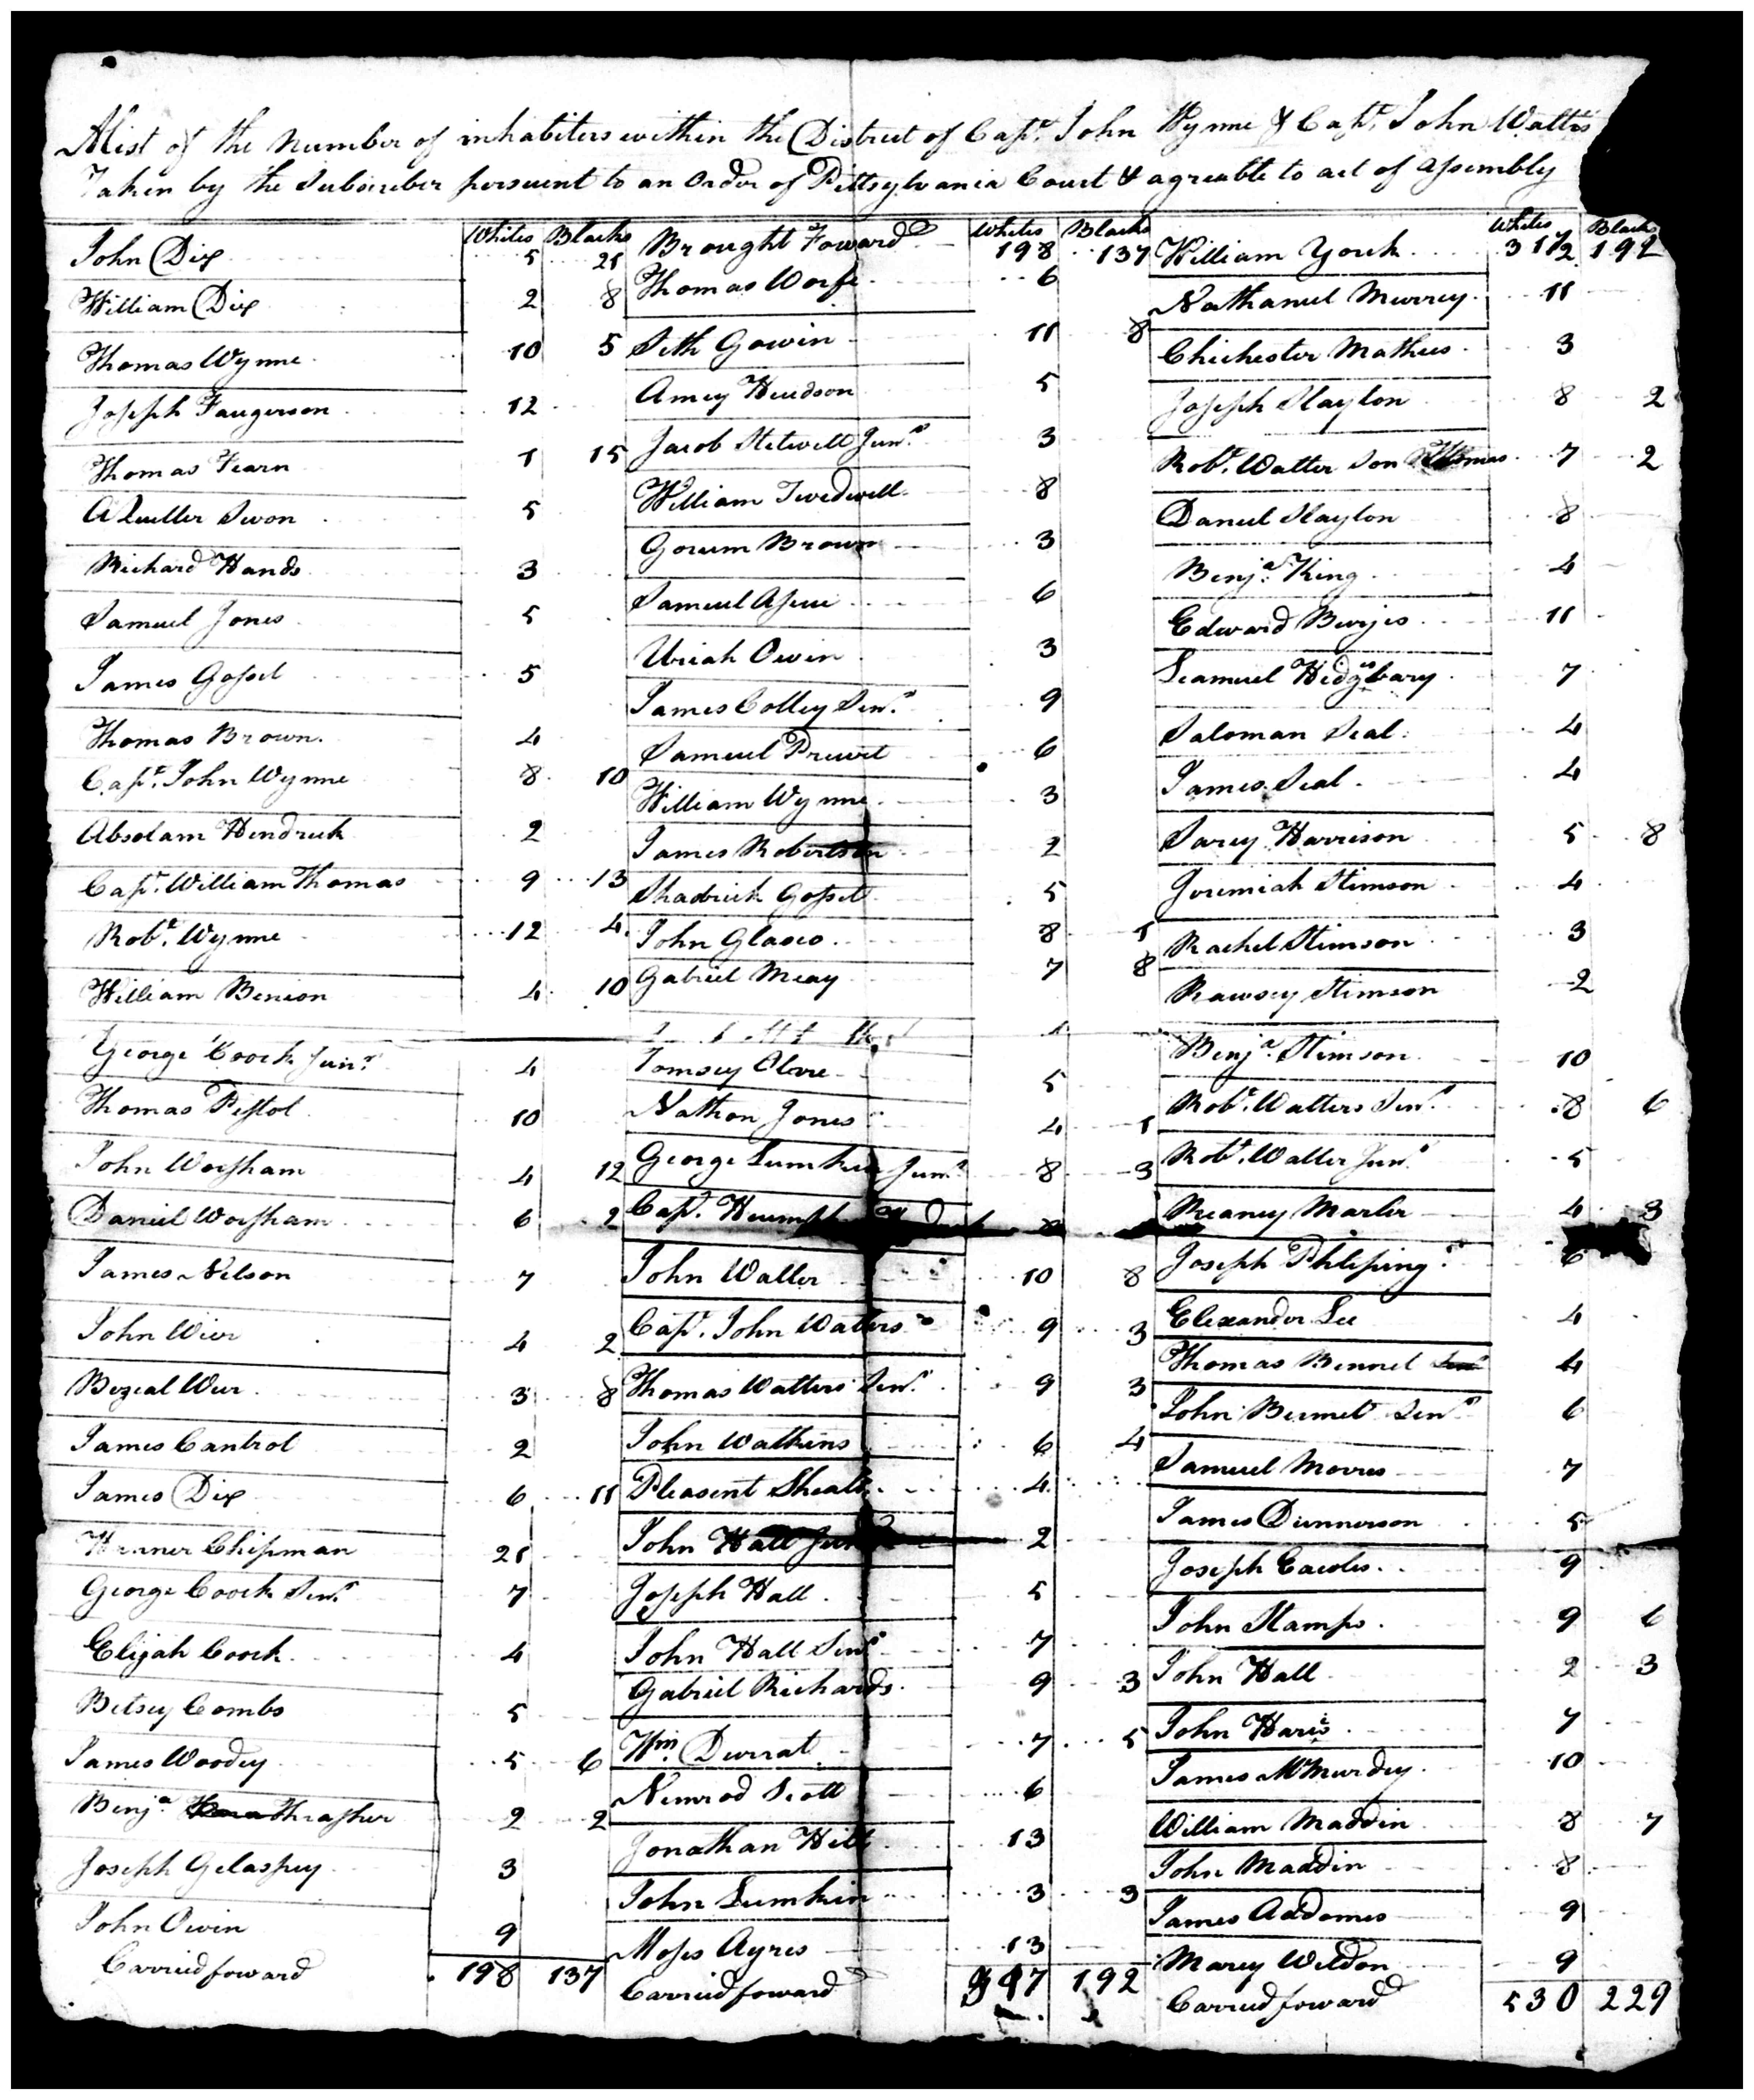 A List of the Number of inhabiters within the District of Capt. John Wynne & Capt. John Watters
Taken by the Subscriber persuent to an Order of Pittsylvania Court & agreable to act of assembly
Whites Blacks
John Dix 5 21
William Dix 2 8
Thomas Wynne 10 5
Joseph Faugerson 12
Thomas Fearn 1 15
Swon 5
Richard Hands 3
Samuel Jones 5
James Gossel 5
Thomas Brown 4
Capt. John Wynne 8 10
Absolam Hendrick 2
Capt. William Thomas 9 13
Robt. Wynne 12 4
William Benion 4 10
George Coock Junr. 4
Thomas Pistol 10
John Worsham 4 12
Daniel Worsham 6 2
James Nelson 7
John Wier 4 2
Bezeal Wier 3 8
James Cantrol 2
James Dix 6 11
Chipman 21
George Coock Senr. 7
Elijah Coock 4
Betsey Combs 5
James Woodey 5 6
Benja. Thrasher 2 2
Joseph Gelaspey 3
John Owin 9
Carried foward 198 137
Whites Blacks
Brought Foward 198 137
Thomas 6
Seth Gowin 11 8
Amey Heudson 5
Jacob Stilwell Junr. 3
William Twedwell 8
Gorum Brown 3
Samuel 6
Uriah Owin 3
James Colley Senr. 9
Samuel Prewit 6
William Wynne 3
James Robertson 2
Shadrick Gossel 5
John Glasco 8 1
Gabriel Meay 7 8
Tomsey 5
Nathon Jones 4 1
George Lumkin Junr. 8 3
Capt. 8
John Waller 10 8
Capt. John Watters 9 3
Thomas Watters Senr. 9 3
John Watkins 6 4
Pleasent 4
John Hall Junr. 2
Joseph Hall 5
John Hall Senr. 7
Gabriel Richards 9 3
Wm. Durrat 7 5
Nimrod Scott 6
Jonathan Hill 13
John Lumkin 3 3
Moses Ayres 13
Carried foward 397 192
Whites Blacks
William York 192
Nathaniel Murrey 11
Chichester Matheus 3
Joseph Slayton 8 2
Robt. Watter Son Thomas 7 2
Daniel Slayton 8
Benja. King 4
Edward Burjes 11
Leamuel 7
Saloman Seal 4
James Seal 4
Sarey Harrison 5 8
Jeremiah Stimson 4
Rachel Stimson 3
Rawsey Stimson 2
Benja. Stimson 10
Robt. Watters Senr. 8 6
Robt. Watter Junr. 5
Marler 4 3
Joseph 6
Elexander Lee 4
Thomas Bennet 4
John Bennet Senr. 6
Samuel Morris 7
James Dunnerson 5
Joseph 9
John Stamps 9 6
John Hall 2 3
John Haris 7
James McMurdey 10
William Maddin 8 7
John Maddin 8
James Addomes 9
Marey Weldon 9
Carried foward 530 229